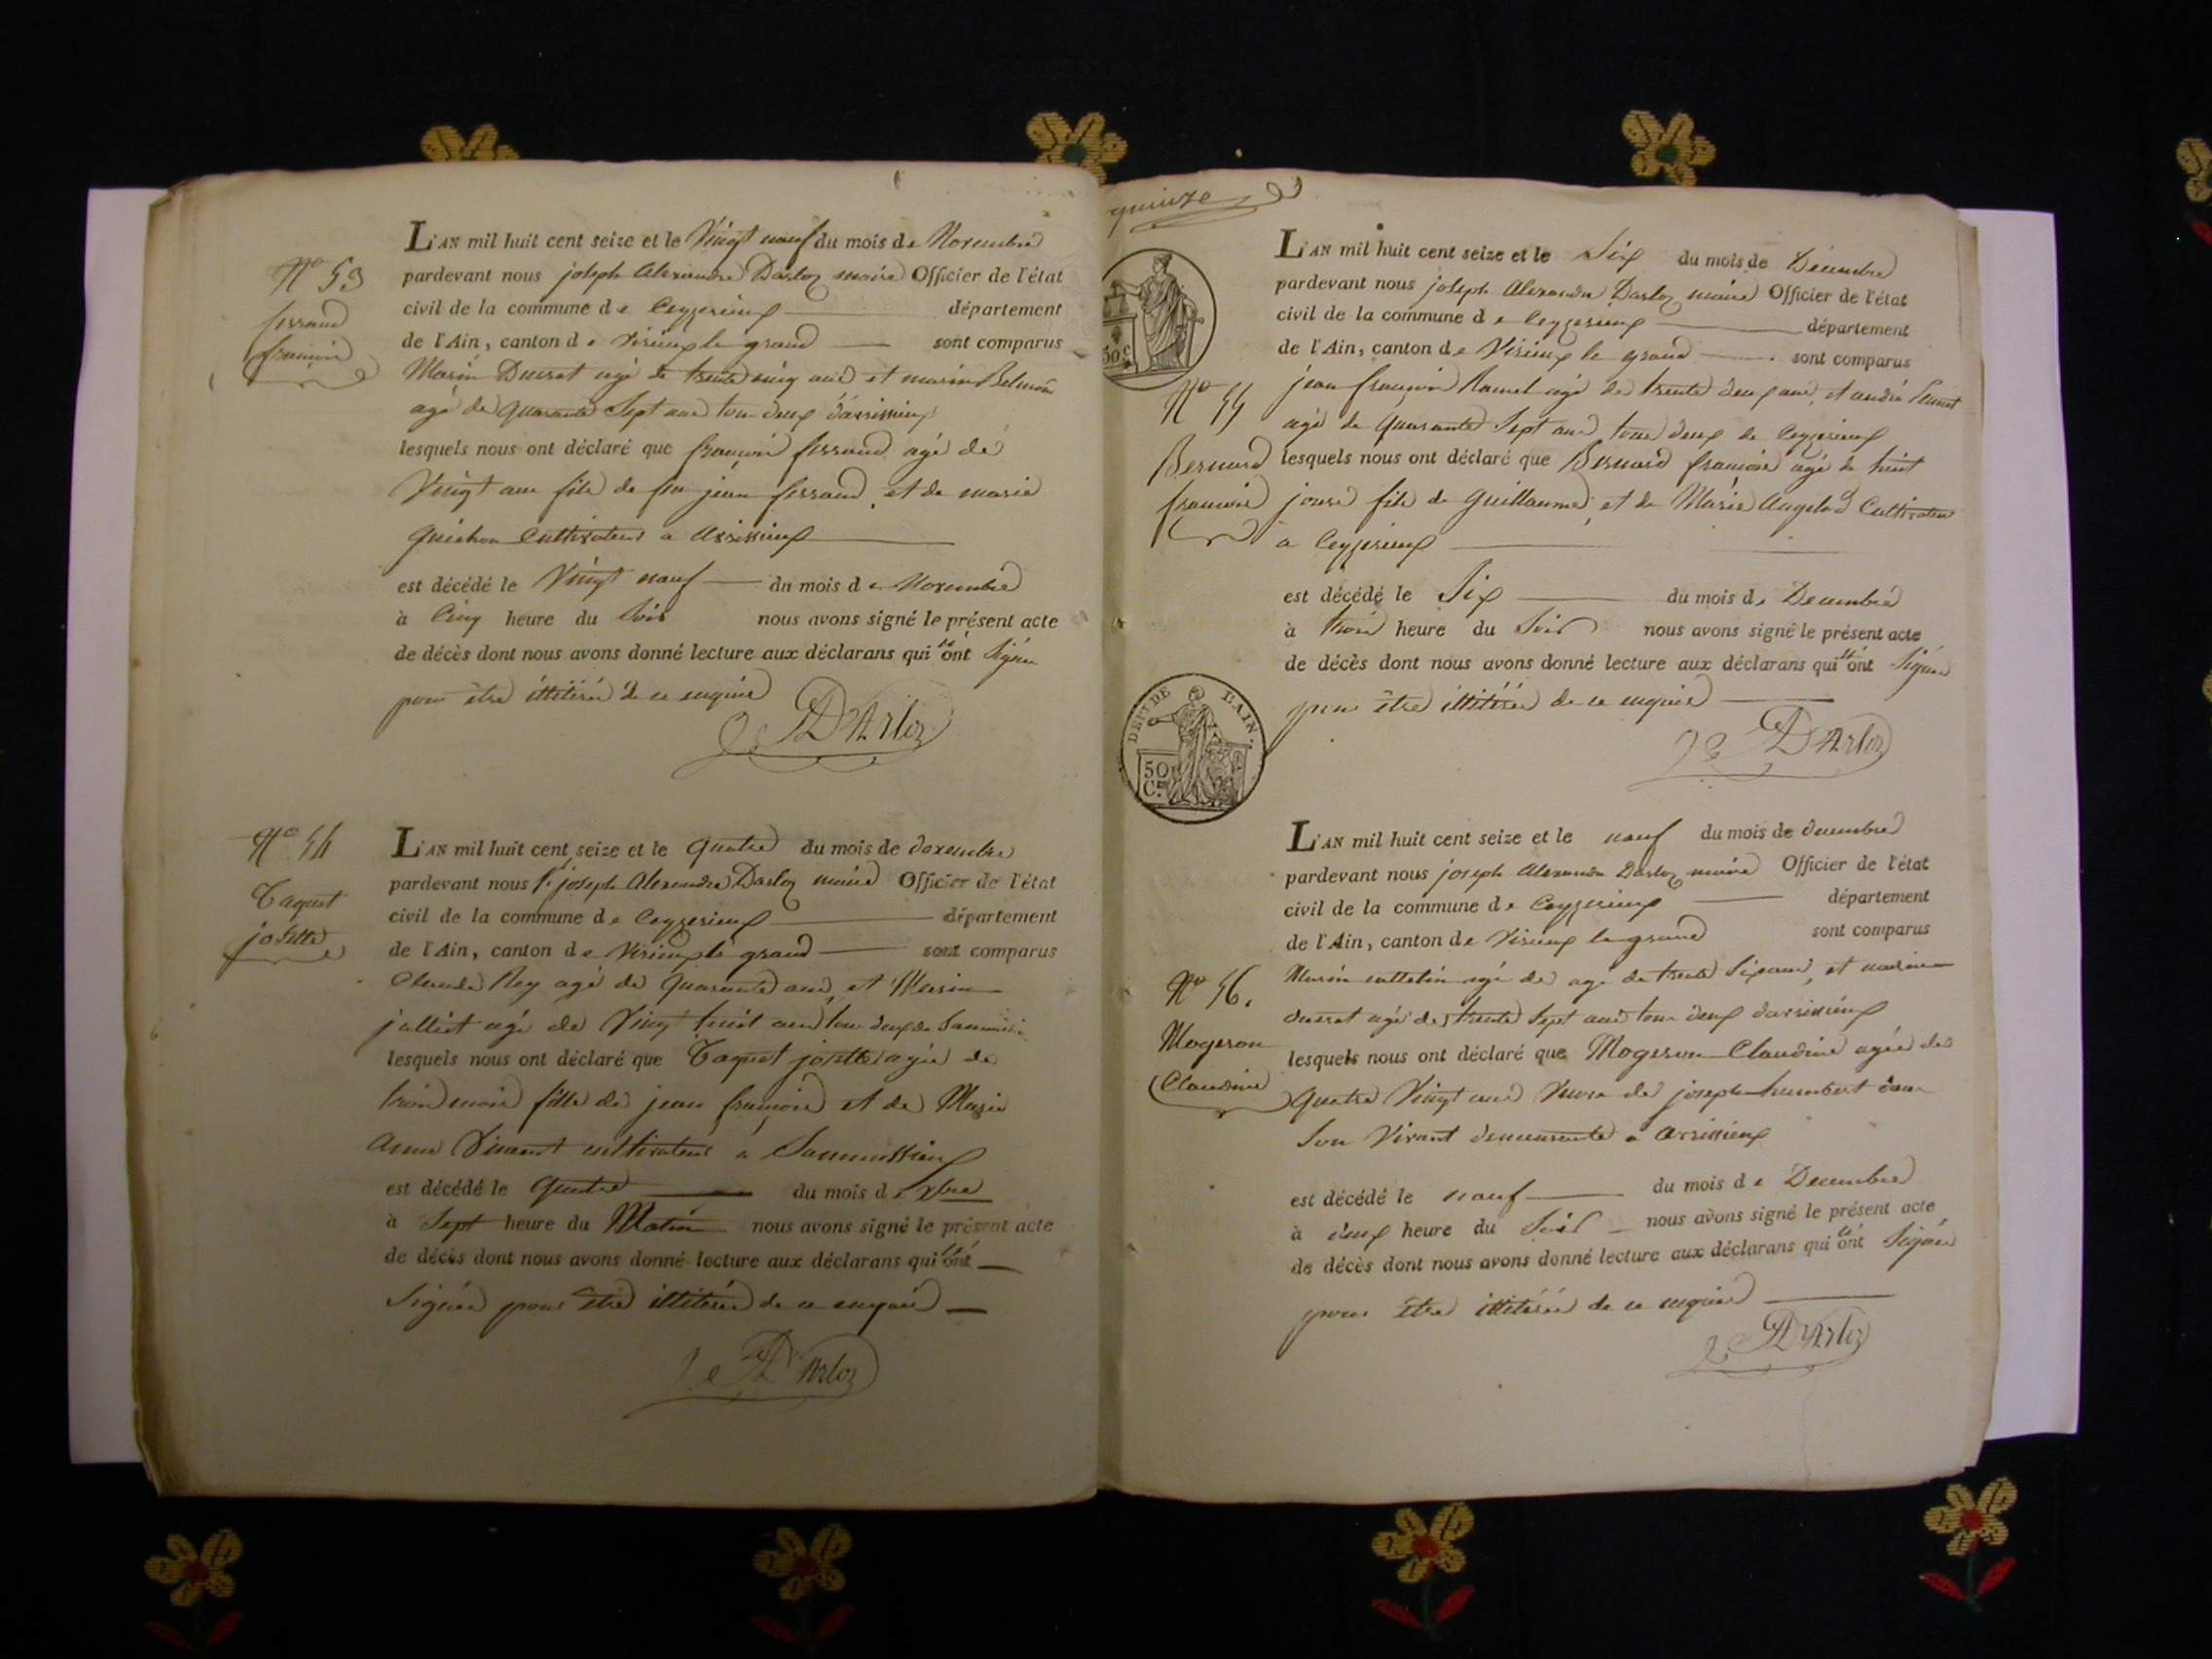 N° 53
ferraud
françois
L'AN mil huit cent seize et le Vingt neuf du mois de Novembre
pardevant nous joseph Alexandre Darloz maire Officier de l'état
civil de la commune de Ceyzerieux département
de l'Ain, canton de Virieux le grand sont comparus
Marin Ducrot agé de trente cinq ans et marin Belmon
agé de quarante Sept ans tous deux d'avrissieux
lesquels nous ont déclaré que françois ferraud agé de
Vingt ans fils de feu jean ferraud et de marie
Guichon Cultivateur a avrissieux
est décédé le Vingt neuf du mois de Novembre
à Cinq heure du Soir nous avons signé le présent acte
de décès dont nous avons donné lecture aux déclarans qui ont Signé
pour être illitéré de ce enquis
DArloz
N° 54
Taquet
josette
L'AN mil huit cent seize et le quatre du mois de decembre
pardevant nous joseph Alexandre Darloz maire Officier de l'état
civil de la commune de Ceyzerieux département
de l'Ain, canton de Virieux le grand sont comparus
Claude Rey agé de quarante ans et Marin
julliet agé de Vingt huit ans tous deux de
lesquels nous ont déclaré que Taquet josette agée de
trois mois fille de jean françois et de Marie
anne Vincent cultivateur a
est décédé le quatre du mois de xbre
à Sept heure du Matin nous avons signé le présent acte
de décès dont nous avons donné lecture aux déclarans qui ont
Signé pour être illitéré de ce enquis
DArloz
quinze
50 C.
L'AN mil huit cent seize et le Six du mois de Décembre
pardevant nous joseph Alexandre Darloz maire Officier de l'état
civil de la commune de Ceyzerieux département
de l'Ain, canton de Virieux le grand sont comparus
N° 55
jean françois Ramel agé de trente deux ans, et andré
agé de quarante Sept ans tous deux de Ceyzerieux
Bernard
françois
lesquels nous ont déclaré que Bernard françois agé de huit
jours fils de guillaume et de Marie Cultivateur
a Ceyzerieux
est décédé le Six du mois de Decembre
à trois heure du Soir nous avons signé le présent acte
de décès dont nous avons donné lecture aux déclarans qui ont Signé
pour être illitéré de ce enquis
DArloz
DEPT DE L'AIN.
50 C.
L'AN mil huit cent seize et le neuf du mois de decembre
pardevant nous joseph Alexandre Darloz maire Officier de l'état
civil de la commune de Ceyzerieux département
de l'Ain, canton de Virieux le grand sont comparus
N° 56.
Mogeron
Claudine
Marin cattelin agé de agé de trente Six ans, et marin
ducrot agé de trente Sept ans tous deux d'avrissieux
lesquels nous ont déclaré que Mogeron Claudine agée de
quatre Vingt ans Veuve de joseph humbert dans
Son Vivant demeurante a avrissieux
est décédé le neuf du mois de Decembre
à deux heure du Soir nous avons signé le présent acte
de décès dont nous avons donné lecture aux déclarans qui ont Signé
pour être illitéré de ce enquis
DArloz